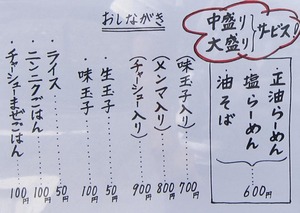 おしながき
中盛り
大盛り
サービス!
正油らーめん
塩らーめん
油そば
600円
(味玉子入り) 700円
(メンマ入り) 800円
(チャーシュー入り) 900円
生玉子 50円
味玉子 100円
ライス 50円
ニンニクごはん 100円
チャーシューまぜごはん 100円